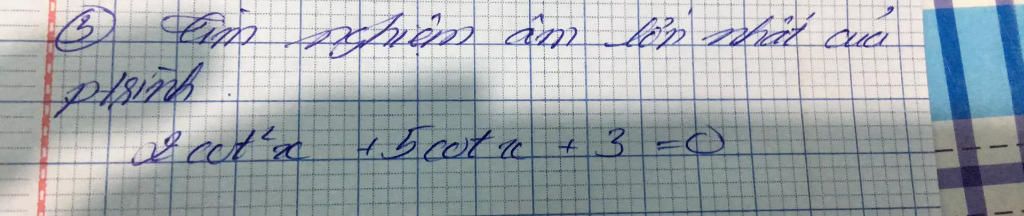 ③ Tìm nghiệm âm lớn nhất của
ptrình
2cot²x + 5cotx + 3 = 0